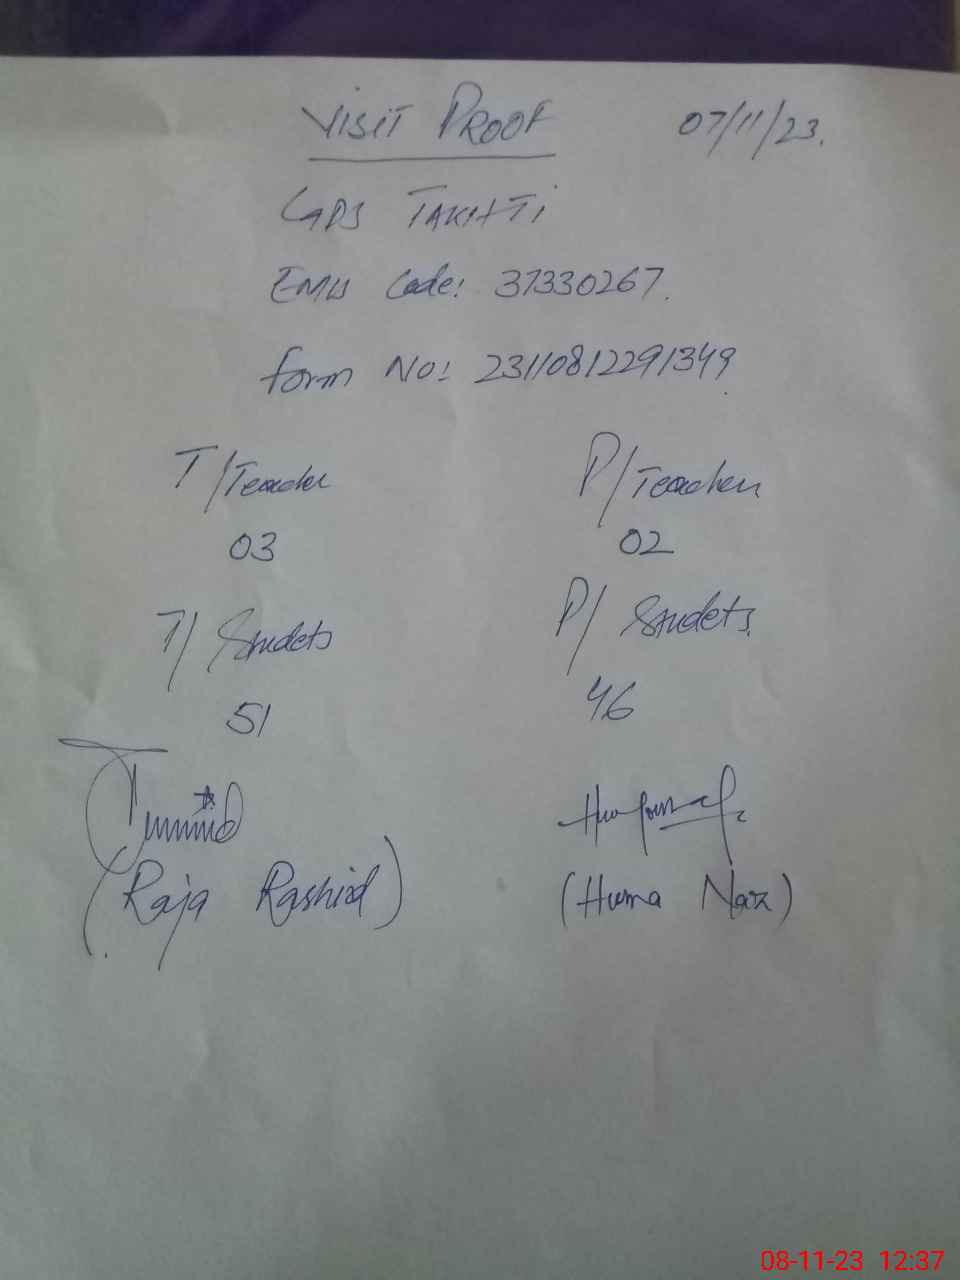 VISIT PROOF 07/11/23.
GPS TAKHTI
EMIS Code: 37330267.
Form No: 23110812291349
T/Teacher P/Teachers
03 02
T/Studets P/Studets.
51 46
(Raja Rashid) (Huma Naz)
08-11-23 12:37